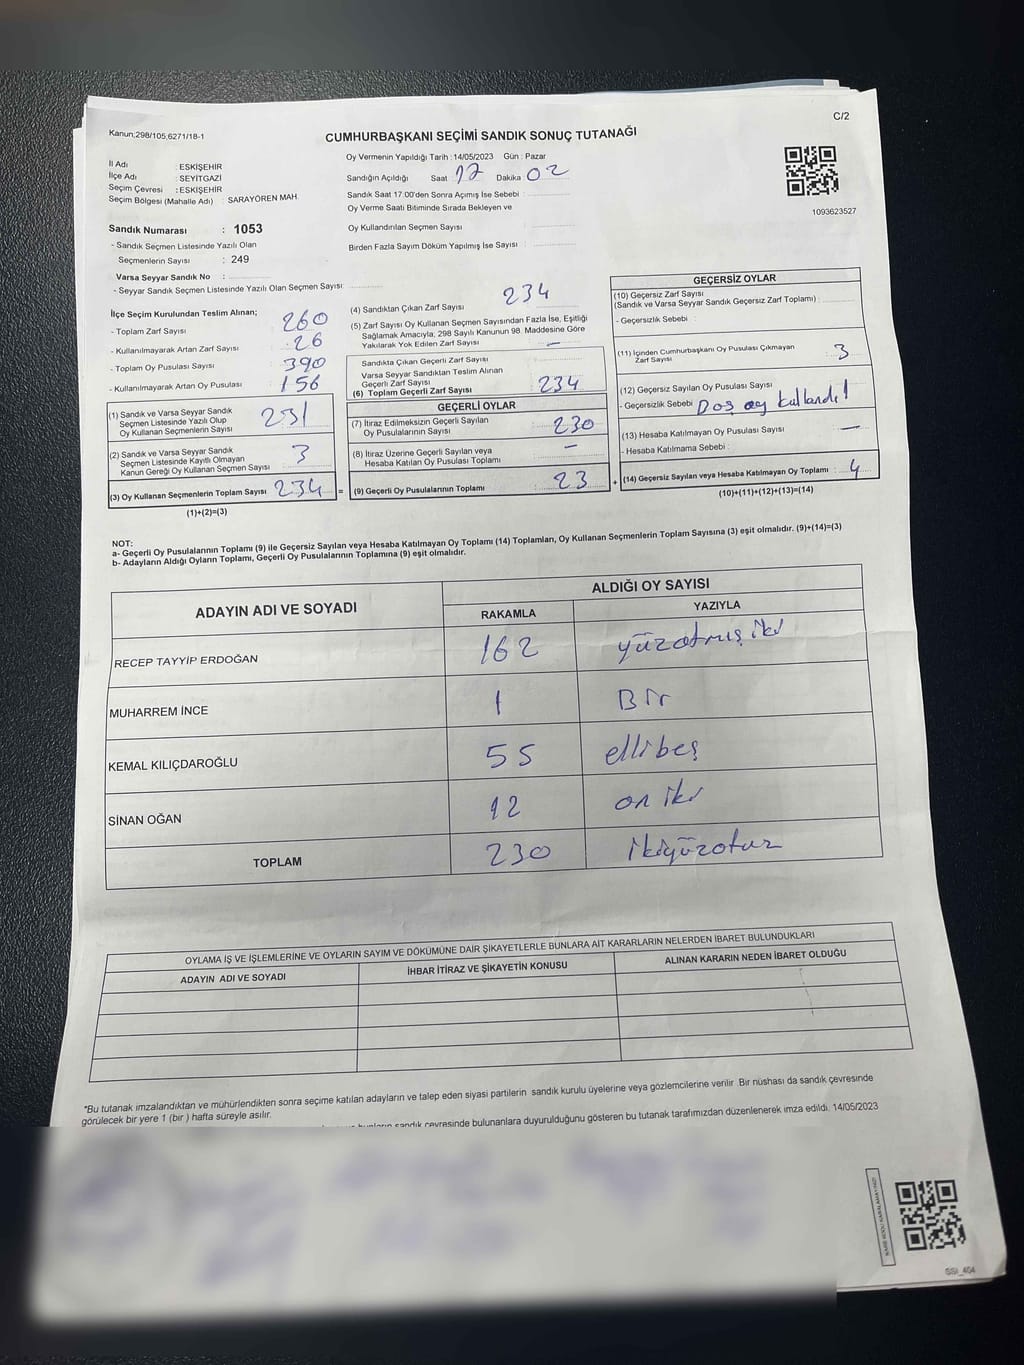 C/2
Kanun;298/105;6271/18-1
CUMHURBAŞKANI SEÇİMİ SANDIK SONUÇ TUTANAĞI
İl Adı : ESKİŞEHİR
İlçe Adı : SEYİTGAZİ
Seçim Çevresi : ESKİŞEHİR
Seçim Bölgesi (Mahalle Adı) : SARAYÖREN MAH
Oy Vermenin Yapıldığı Tarih :14/05/2023 Gün : Pazar
Sandığın Açıldığı Saat 17 Dakika 02
Sandık Saat 17.00'den Sonra Açımış İse Sebebi :
Oy Verme Saati Bitiminde Sırada Bekleyen ve
Oy Kullandırılan Seçmen Sayısı :
Birden Fazla Sayım Döküm Yapılmış İse Sayısı :
1093623527
Sandık Numarası : 1053
- Sandık Seçmen Listesinde Yazılı Olan
Seçmenlerin Sayısı : 249
Varsa Seyyar Sandık No :
- Seyyar Sandık Seçmen Listesinde Yazılı Olan Seçmen Sayısı:
İlçe Seçim Kurulundan Teslim Alınan;
- Toplam Zarf Sayısı 260
- Kullanılmayarak Artan Zarf Sayısı 26
- Toplam Oy Pusulası Sayısı 390
- Kullanılmayarak Artan Oy Pusulası 156
(1) Sandık ve Varsa Seyyar Sandık
Seçmen Listesinde Yazılı Olup
Oy Kullanan Seçmenlerin Sayısı 231
(2) Sandık ve Varsa Seyyar Sandık
Seçmen Listesinde Kayıtlı Olmayan
Kanun Gereği Oy Kullanan Seçmen Sayısı 3
(3) Oy Kullanan Seçmenlerin Toplam Sayısı 234 =
(1)+(2)=(3)
(4) Sandıktan Çıkan Zarf Sayısı 234
(5) Zarf Sayısı Oy Kullanan Seçmen Sayısından Fazla İse, Eşitliği
Sağlamak Amacıyla; 298 Sayılı Kanunun 98. Maddesine Göre
Yakılarak Yok Edilen Zarf Sayısı –
Sandıkta Çıkan Geçerli Zarf Sayısı
Varsa Seyyar Sandıktan Teslim Alınan
Geçerli Zarf Sayısı
(6) Toplam Geçerli Zarf Sayısı 234
GEÇERLİ OYLAR
(7) İtiraz Edilmeksizin Geçerli Sayılan
Oy Pusulalarının Sayısı 230
(8) İtiraz Üzerine Geçerli Sayılan veya
Hesaba Katılan Oy Pusulası Toplamı –
(9) Geçerli Oy Pusulalarının Toplamı 23 +
GEÇERSİZ OYLAR
(10) Geçersiz Zarf Sayısı
(Sandık ve Varsa Seyyar Sandık Geçersiz Zarf Toplamı)
- Geçersizlik Sebebi :
(11) İçinden Cumhurbaşkanı Oy Pusulası Çıkmayan
Zarf Sayısı 3
(12) Geçersiz Sayılan Oy Pusulası Sayısı
- Geçersizlik Sebebi Boş oy kullandı 1
(13) Hesaba Katılmayan Oy Pusulası Sayısı –
- Hesaba Katılmama Sebebi :
(14) Geçersiz Sayılan veya Hesaba Katılmayan Oy Toplamı 4
(10)+(11)+(12)+(13)=(14)
NOT:
a- Geçerli Oy Pusulalarının Toplamı (9) ile Geçersiz Sayılan veya Hesaba Katılmayan Oy Toplamı (14) Toplamları, Oy Kullanan Seçmenlerin Toplam Sayısına (3) eşit olmalıdır. (9)+(14)=(3)
b- Adayların Aldığı Oyların Toplamı, Geçerli Oy Pusulalarının Toplamına (9) eşit olmalıdır.
ADAYIN ADI VE SOYADI ALDIĞI OY SAYISI
RAKAMLA YAZIYLA
RECEP TAYYİP ERDOĞAN 162 yüzatmış iki
MUHARREM İNCE 1 Bir
KEMAL KILIÇDAROĞLU 55 ellibeş
SİNAN OĞAN 12 on iki
TOPLAM 230 ikiyüzotuz
OYLAMA İŞ VE İŞLEMLERİNE VE OYLARIN SAYIM VE DÖKÜMÜNE DAİR ŞİKAYETLERLE BUNLARA AİT KARARLARIN NELERDEN İBARET BULUNDUKLARI
ADAYIN ADI VE SOYADI İHBAR İTİRAZ VE ŞİKAYETİN KONUSU ALINAN KARARIN NEDEN İBARET OLDUĞU
*Bu tutanak imzalandıktan ve mühürlendikten sonra seçime katılan adayların ve talep eden siyasi partilerin sandık kurulu üyelerine veya gözlemcilerine verilir. Bir nüshası da sandık çevresinde
görülecek bir yere 1 (bir ) hafta süreyle asılır.
sandık çevresinde bulunanlara duyurulduğunu gösteren bu tutanak tarafımızdan düzenlenerek imza edildi. 14/05/2023
KARE KODU KARALAMAYINIZ!
SSI_404